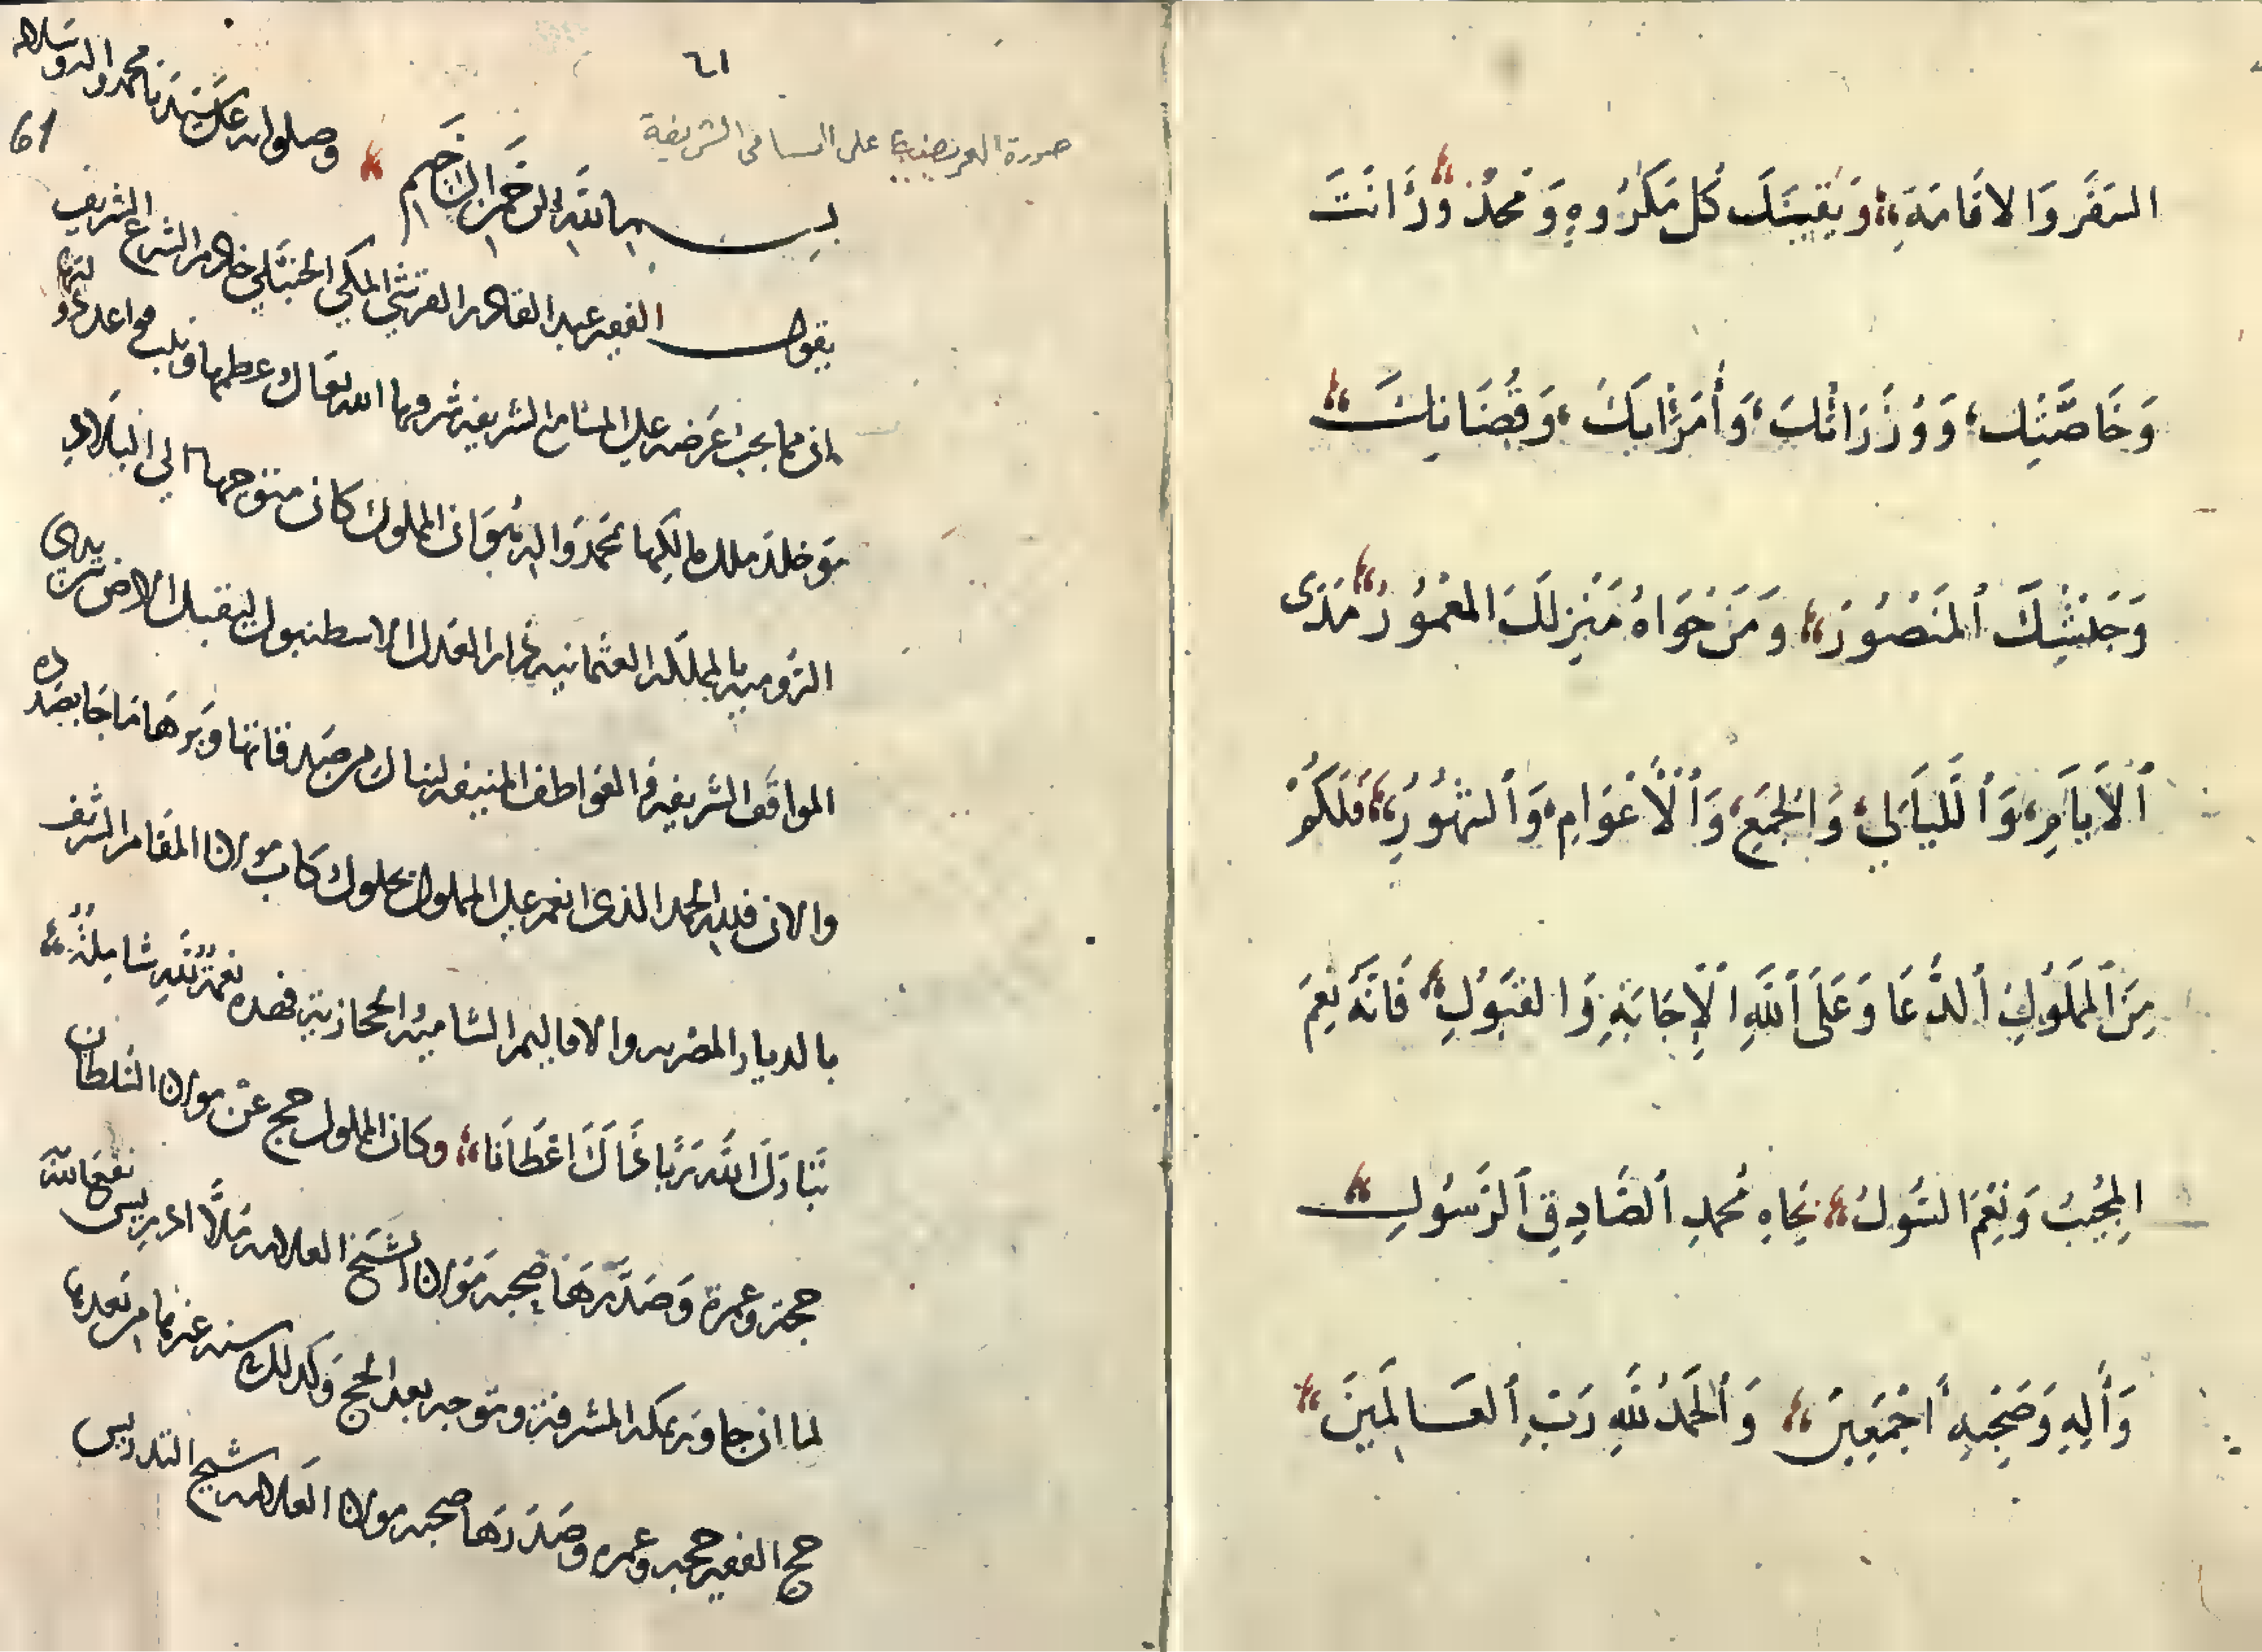 السفر والاقامة ويقيك كل مكروه ومحذور وانت
وخاصتك، ووزرائك، وأمرائك، وقضاتك
وجيشك المنصور، ومن حواه منزلك المعمور مدى
الأيام، والليالي، والجمع، والأعوام، والشهور، فلكم
من المملوك الدعا وعلى الله الإجابة والقبول، فانه نعم
المجيب ونعم السول، بجاه محمد الصادق الرسول
وأله وصحبه أجمعين، والحمد لله رب العالمين
٦١
61
صورة العرض على المسامع الشريفة
بسم الله الرحمن الرحيم وصلواته على سيدنا محمد واله وسلامه
يقول الفقير عبد القادر القرشي المكي الحنبلي خادم الشرع الشريف
ان مما يجب عرضه على المسامع الشريفة شرفها الله تعالى وعظمها
خلد ملك مالكها بمحمد واله ان المملوك كان متوجها الى البلاد
الرومية بالمملكة العثمانية دار العدل الاسطنبول ليقبل الارض بين يدي
المواقف الشريفة والعواطف المنيفة لينال من صدقاتها وبرها ما جا بصدده
والان فلله الحمد الذي انعم على المملوك بحلول ركاب مولانا المقام الشريف
بالديار المصريه والاقاليم الشامية الحجازية فهذه نعمة لله شاملة
تبارك الله ربا اعطانا، وكان المملوك حج عن مولانا السلطان
حجة وعمرة وصدرها صحبة مولانا الشيخ العلامه ملا ادريس نفع الله
لما ان جاور بمكه المشرفة وتوجه بعد الحج وكذلك سنه من بعدها
حج الفقير حجه وعمره وصدرها صحبه مولانا العلامه شيخ التدريس